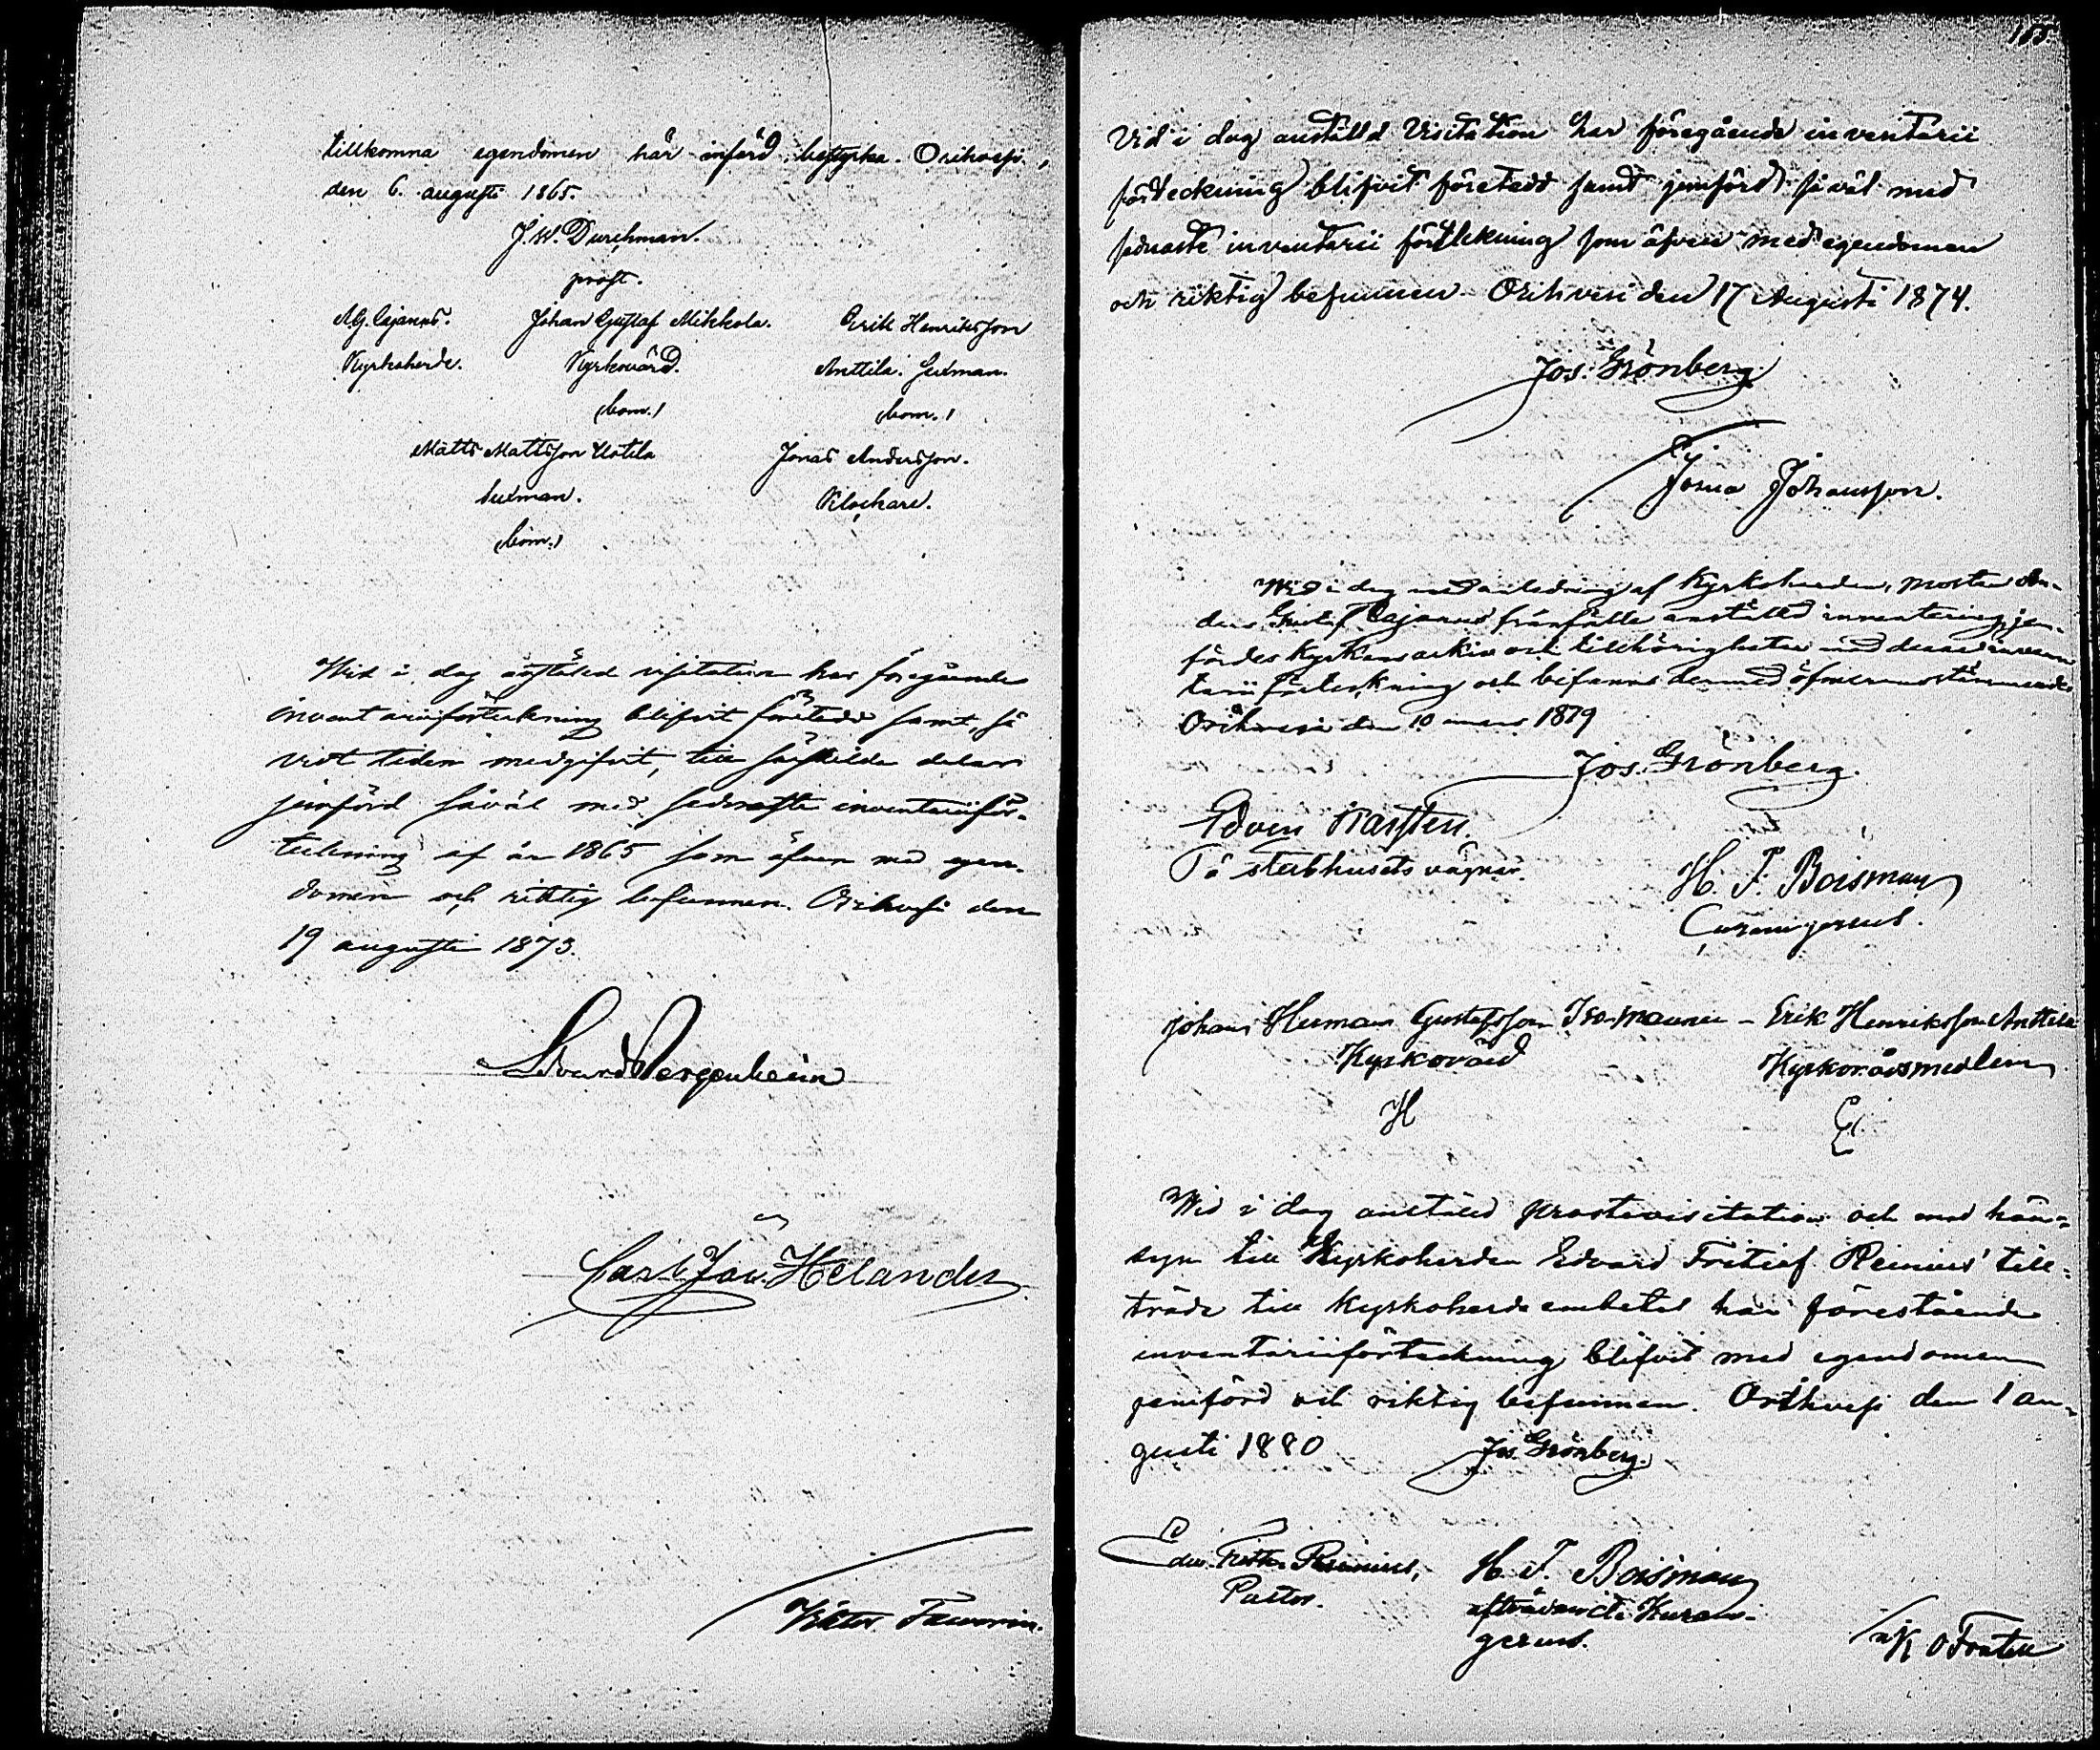 tillkomna egendomen här införd, bestyrka. Orihvesi,
den 6. augusti 1865.
J. W. Durchman.
prost.
A. G. Cajanus. Johan Gustaf Mikkola. Erik Henriksson
Kyrkoherde. Kyrkovärd. Anttila. Sexman.
(bom.) (bom.)
Matts Mattsson Uotila Jonas Andersson.
Sexman. Klockare.
(bom.)
Wid i dag anstäld visitation har föregående
inventariiförteckning blifvit företedd samt, så
vidt tiden medgifvit, till särskilda delar
jemförd såväl med sednaste inventariiför-
teckning af år 1865 som äfven med egen-
domen och riktig befunnen. Orihvesi den
19 augusti 1873.
Edvard Bergenheim
Carl Jac. Helander
Viktor Tawonin.
165.
Vid i dag anställd Visitation har föregående inventarii
förteckning blifvit företedd samt jemförd så väl med
sednaste inventarii förteckning som äfven med egendomen
och riktig befunnen. Orihvesi den 17 Augusti 1874.
Jos. Grönberg
Josua Johansson.
Wid i dag med anledning af Kyrkoherden, Prosten An-
ders Gustaf Cajanus frånfälle anstäld inventering jem-
fördes Kyrkans arkiv och tillhörigheter med denna inven-
tarii förteckning och befanns dermed öfverensstämmande
Orihvesi den 10 mars 1879
Jos. Grönberg.
Edvin Karsten.
På sterbhusets vägnar.
H. F. Boisman
Curam gerens.
Johan Herman Gustafsson Iso-Maunu - Erik Henriksson Anttila
Kyrkovärd Kyrkorådsmedlem
H E
Wid i dag anstäld prostevisitation och med hän-
syn till Kyrkoherden Edvard Fritiof Reinius' till-
träde till Kyrkoherde embetet har förestående
inventariiförteckning blifvit med egendomen
jemförd och riktig befunnen. Orihvesi den 1 au-
gusti 1880 Jos. Grönberg.
Edv. Reinius,
Pastor.
H. F. Boisman
afträdande Kuram
gerens.